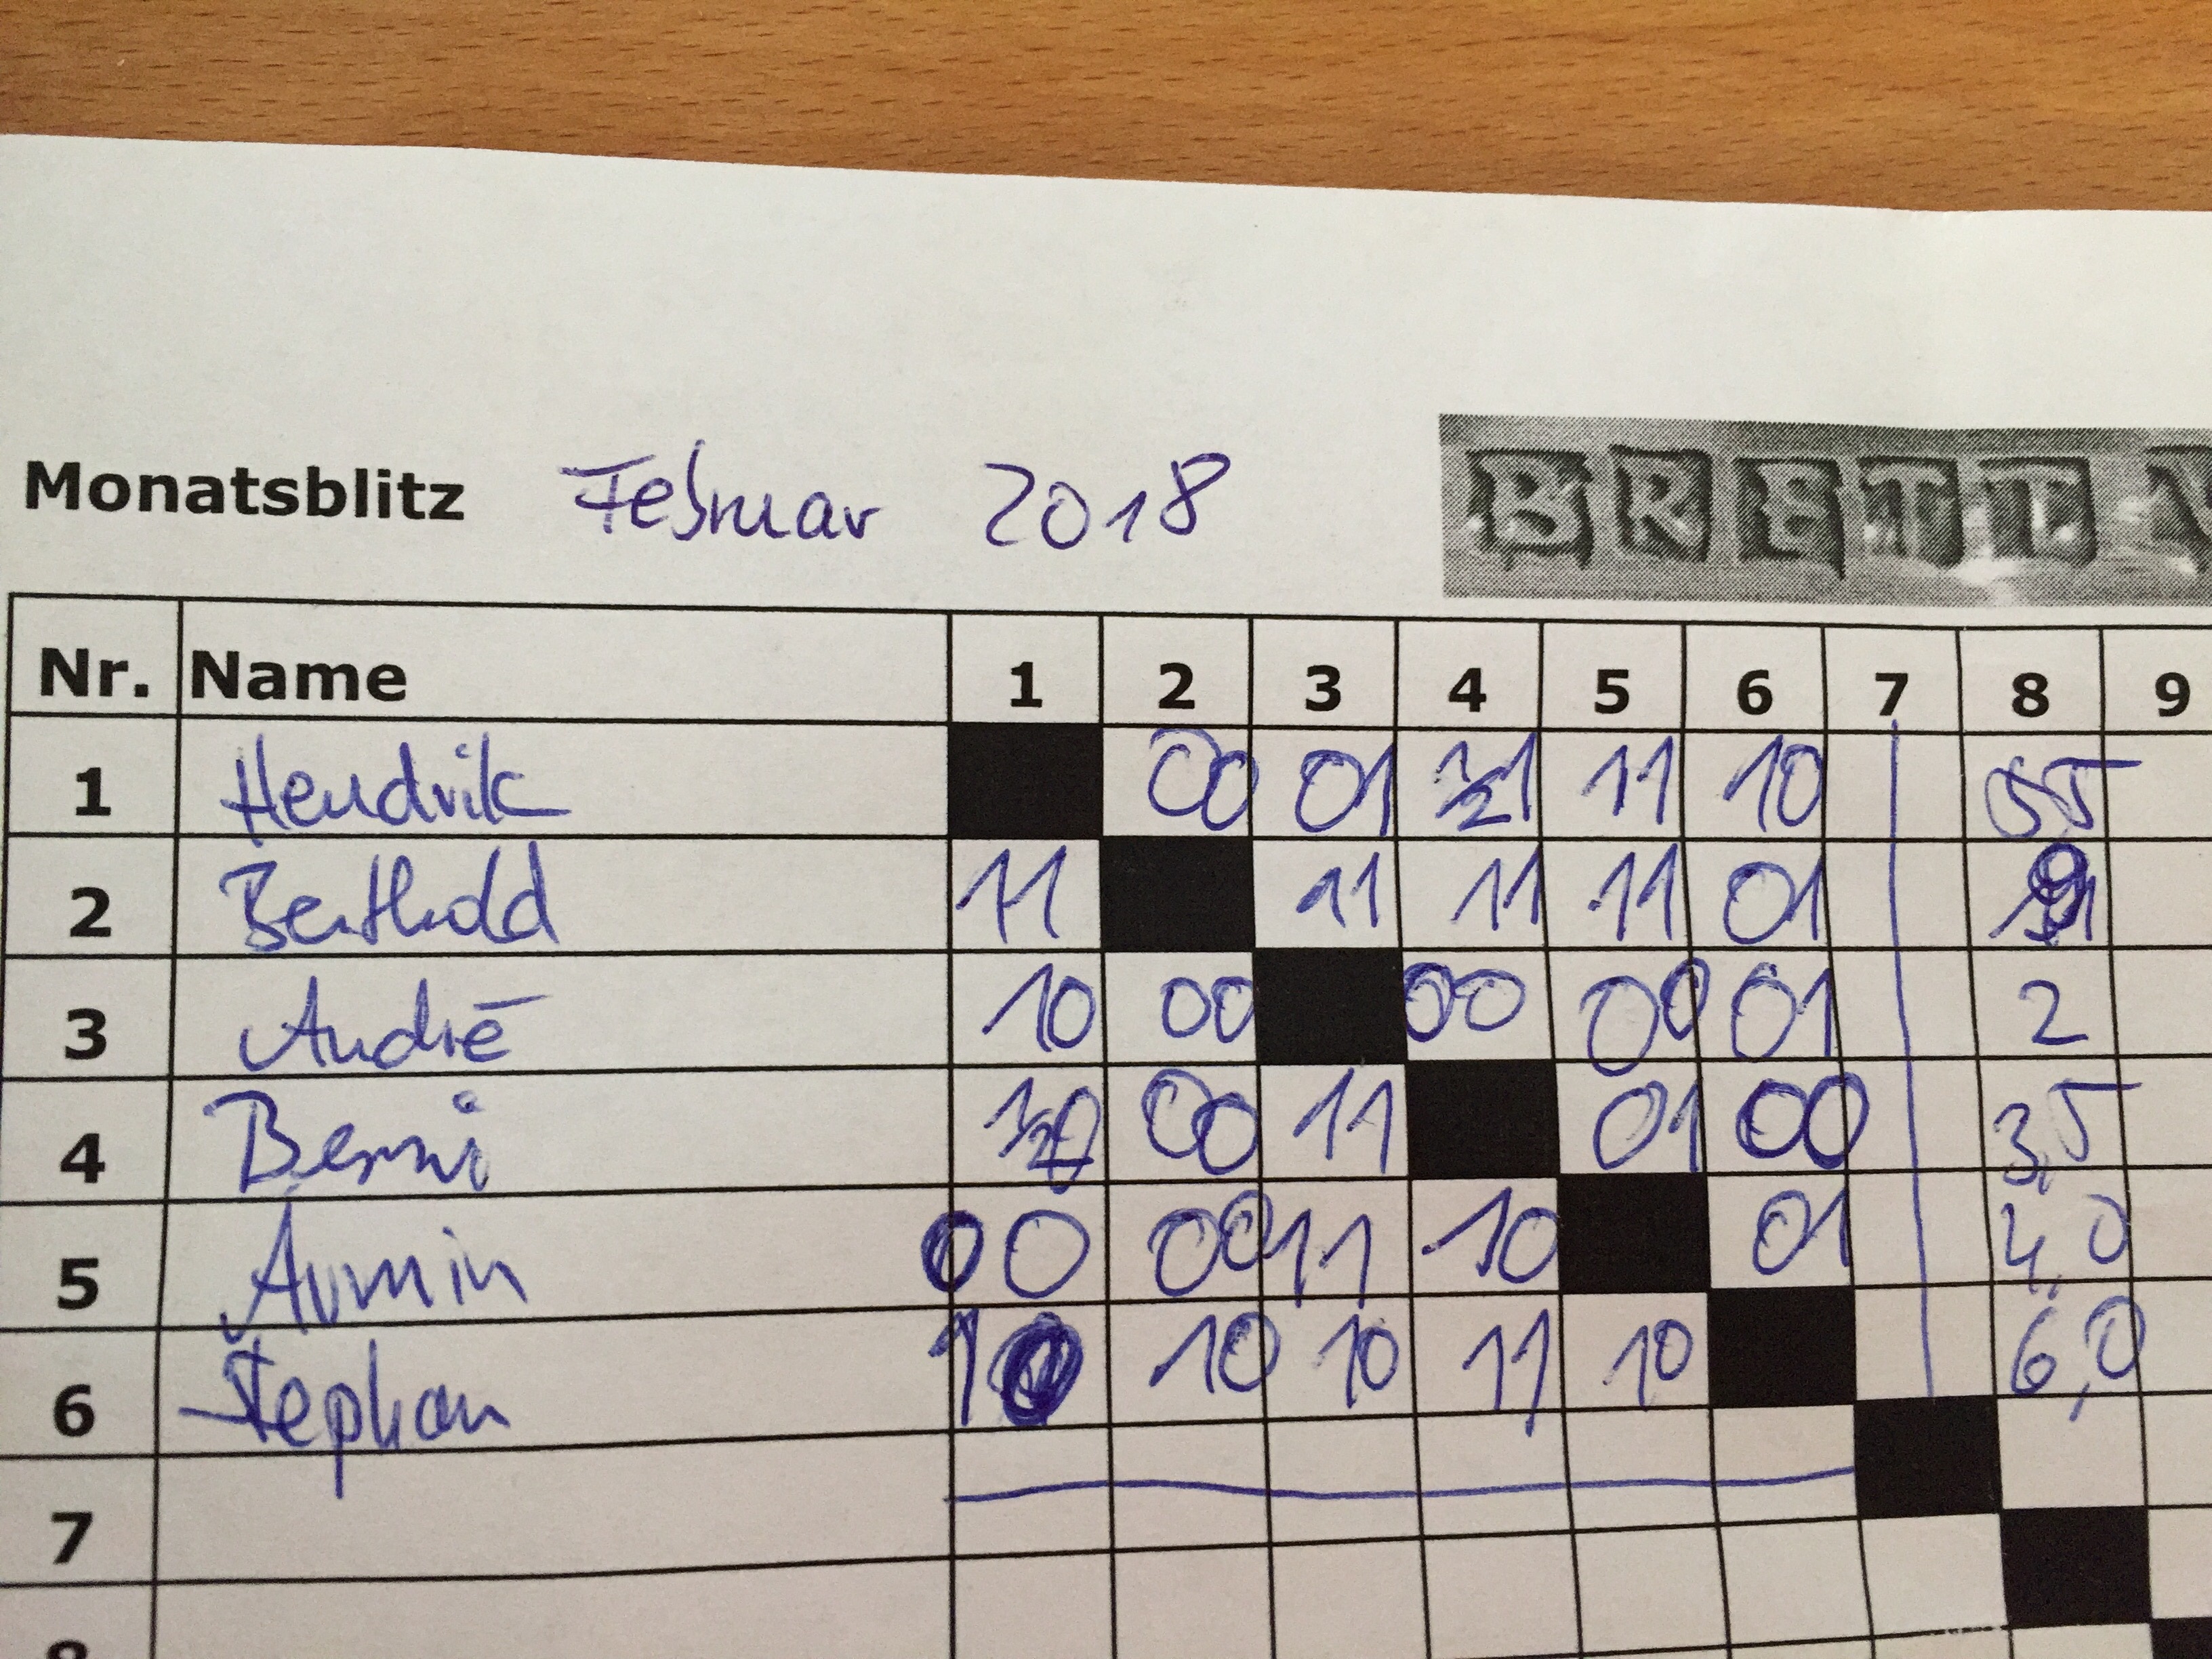 Monatsblitz Februar 2018
BRETT
Nr. Name 1 2 3 4 5 6 7 8 9
1 Hendrik 00 01 ½1 11 10 5,5
2 Berthold 11 11 11 11 01 9
3 André 10 00 00 00 01 2
4 Benni ½0 00 11 01 00 3,5
5 Armin 00 00 11 10 01 4,0
6 Stephan 10 10 10 11 10 6,0
7
8